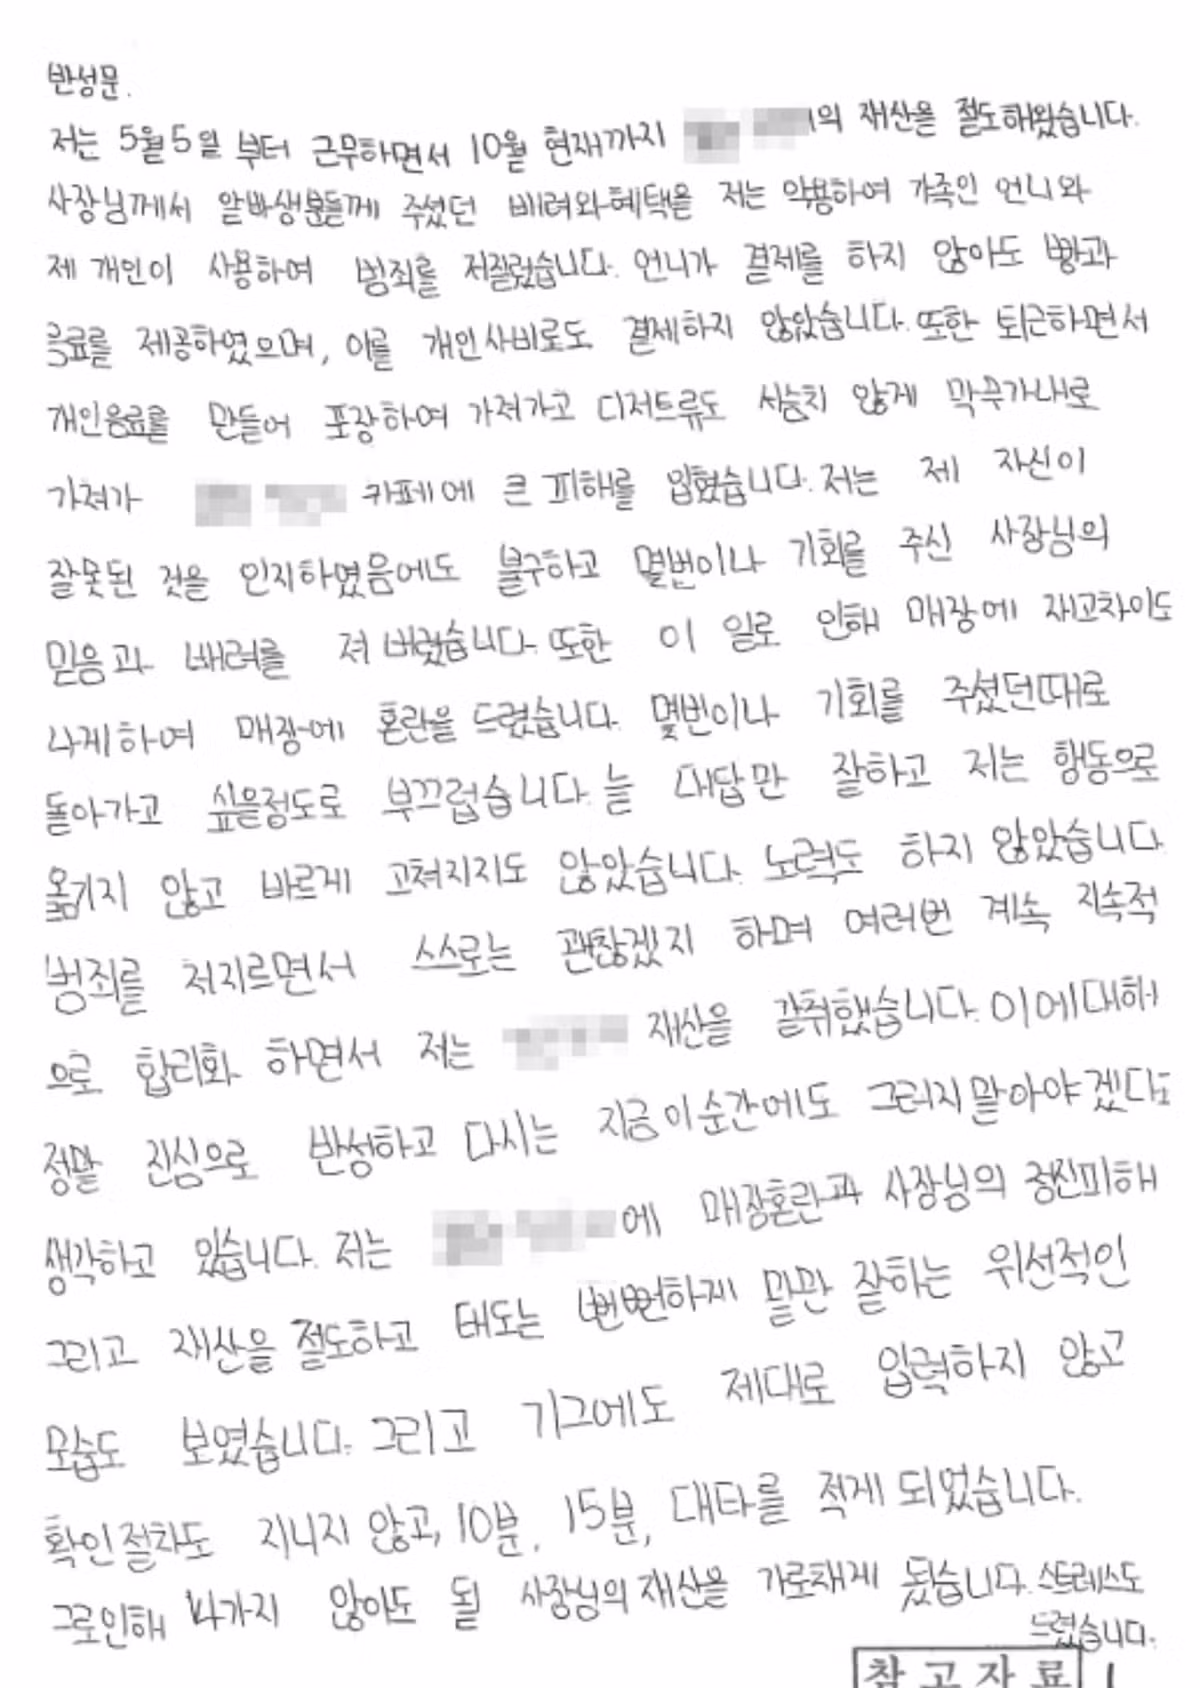 반성문.
저는 5월5일 부터 근무하면서 10월 현재까지 의 재산을 절도해왔습니다.
사장님께서 알바생분들께 주셨던 배려와혜택을 저는 악용하여 가족인 언니와
제 개인이 사용하여 범죄를 저질렀습니다. 언니가 결제를 하지 않아도 빵과
음료를 제공하였으며, 이를 개인사비로도 결제하지 않았습니다. 또한 퇴근하면서
개인음료를 만들어 포장하여 가져가고 디저트류도 서슴치 않게 막무가내로
가져가 카페에 큰 피해를 입혔습니다. 저는 제 자신이
잘못된 것을 인지하였음에도 불구하고 몇번이나 기회를 주신 사장님의
믿음과 배려를 져버렸습니다. 또한 이 일로 인해 매장에 재고차이도
나게하여 매장에 혼란을 드렸습니다. 몇번이나 기회를 주셨던때로
돌아가고 싶을정도로 부끄럽습니다. 늘 대답만 잘하고 저는 행동으로
옮기지 않고 바르게 고쳐지지도 않았습니다. 노력도 하지 않았습니다
범죄를 저지르면서 스스로는 괜찮겠지 하며 여러번 계속 지속적
으로 합리화 하면서 저는 재산을 갈취했습니다. 이에대해
정말 진심으로 반성하고 다시는 지금이순간에도 그러지말아야겠다고
생각하고 있습니다. 저는 에 매장혼란과 사장님의 정신피해
그리고 재산을 절도하고 태도는 뻔뻔하게 말만 잘하는 위선적인
모습도 보였습니다. 그리고 기그에도 제대로 입력하지 않고
확인절차도 지니지 않고, 10분, 15분, 대타를 적게 되었습니다.
그로인해 나가지 않아도 될 사장님의 재산을 가로채게 됐습니다. 스트레스도
드렸습니다.
참고자료 1